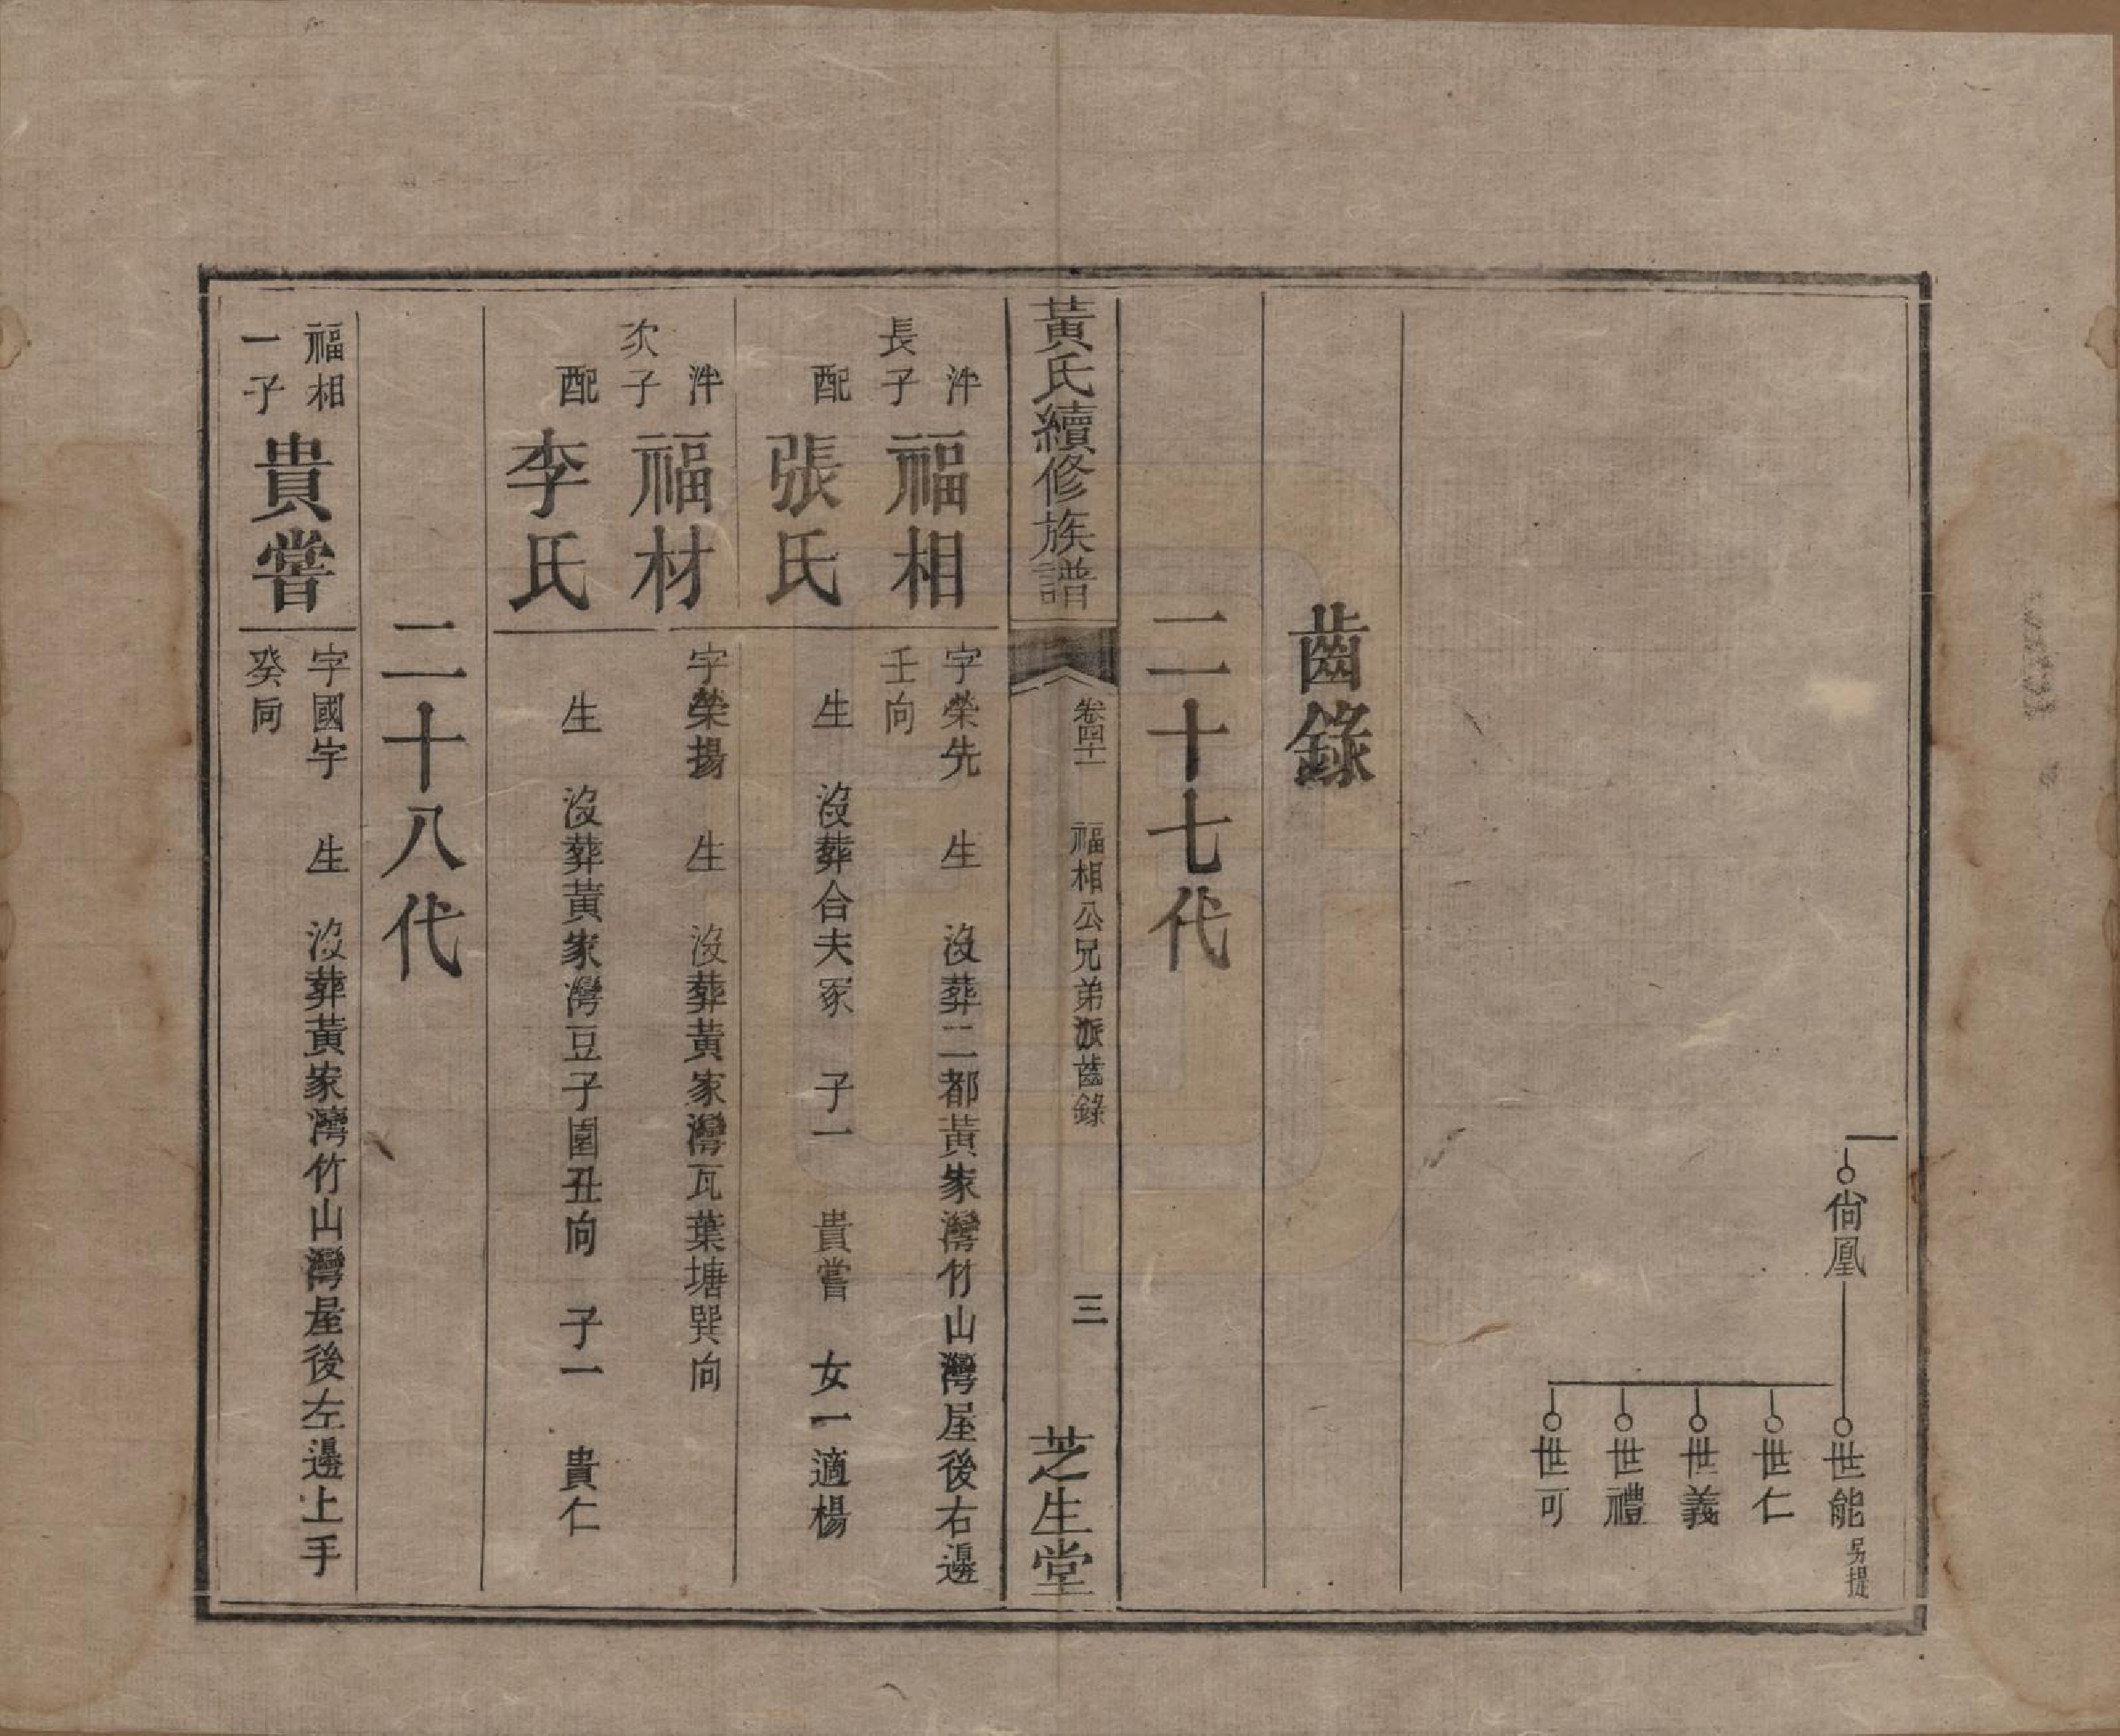 尙凰
世能另提
世仁
世義
世禮
世可
齒錄
二十七代
黃氏續修族譜
卷四十一
福相公兄弟派齒錄
三
芝生堂
泮長子
福相
字榮先 生 沒葬二都黃家灣竹山灣屋後右邊
壬向
配
張氏
生 沒葬合夫冢 子一 貴嘗 女一適楊
泮次子
福材
字榮揚 生 沒葬黃家灣瓦葉塘巽向
配
李氏
生 沒葬黃家灣豆子園丑向 子一 貴仁
二十八代
福相
一子
貴嘗
字國宇 生 沒葬黃家灣竹山灣屋後左邊上手
癸向